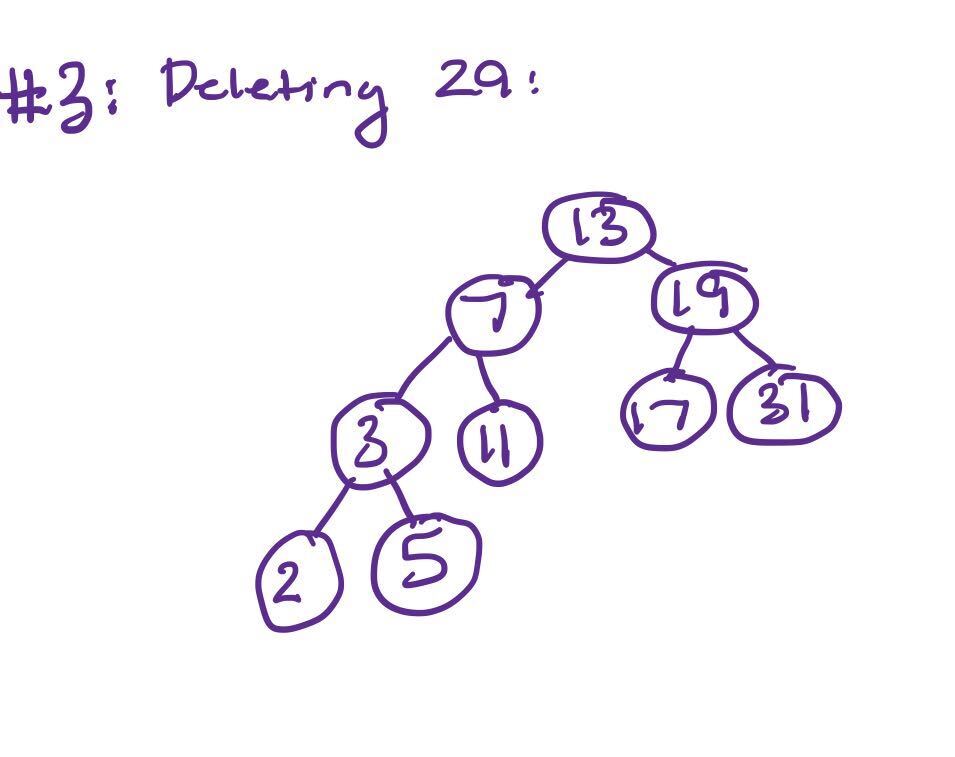 #3: Deleting 29:
13
7 19
3 11 17 31
2 5